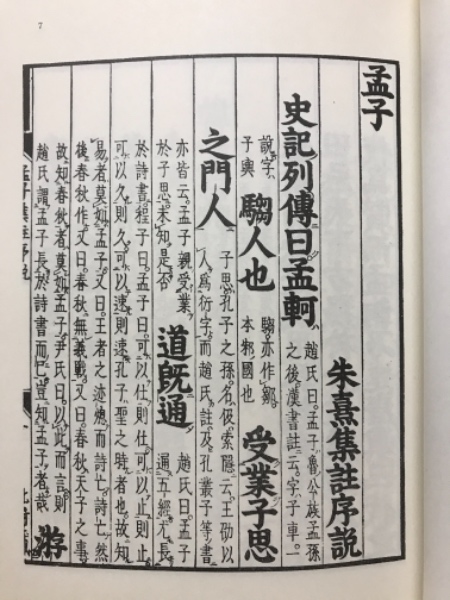 7
孟子
朱熹集註序說
史記列傳曰孟軻
趙氏曰。孟子魯公族孟孫
之後。漢書註云。字子車。一
說。字子輿
騶人也
騶亦作鄒。
本邾國也
受業子思
之門人
子思。孔子之孫。名伋。索隱云。王劭以
人爲衍字。而趙氏註。及孔叢子等書
亦皆云。孟子親受業
於子思。未知是否
道既通
趙氏曰。孟子
通五經。尤長
於詩書。程子曰。孟子曰。可以仕則仕。可以止則止。
可以久則久。可以速則速。孔子聖之時者也。故知
易者莫如孟子。又曰。王者之迹熄而詩亡。詩亡然
後春秋作。又曰。春秋無義戰。又曰。春秋天子之事。
故知春秋者莫如孟子。尹氏曰。以此而言。則
趙氏謂孟子長於詩書而已。豈知孟子者哉
游
孟子集註序說